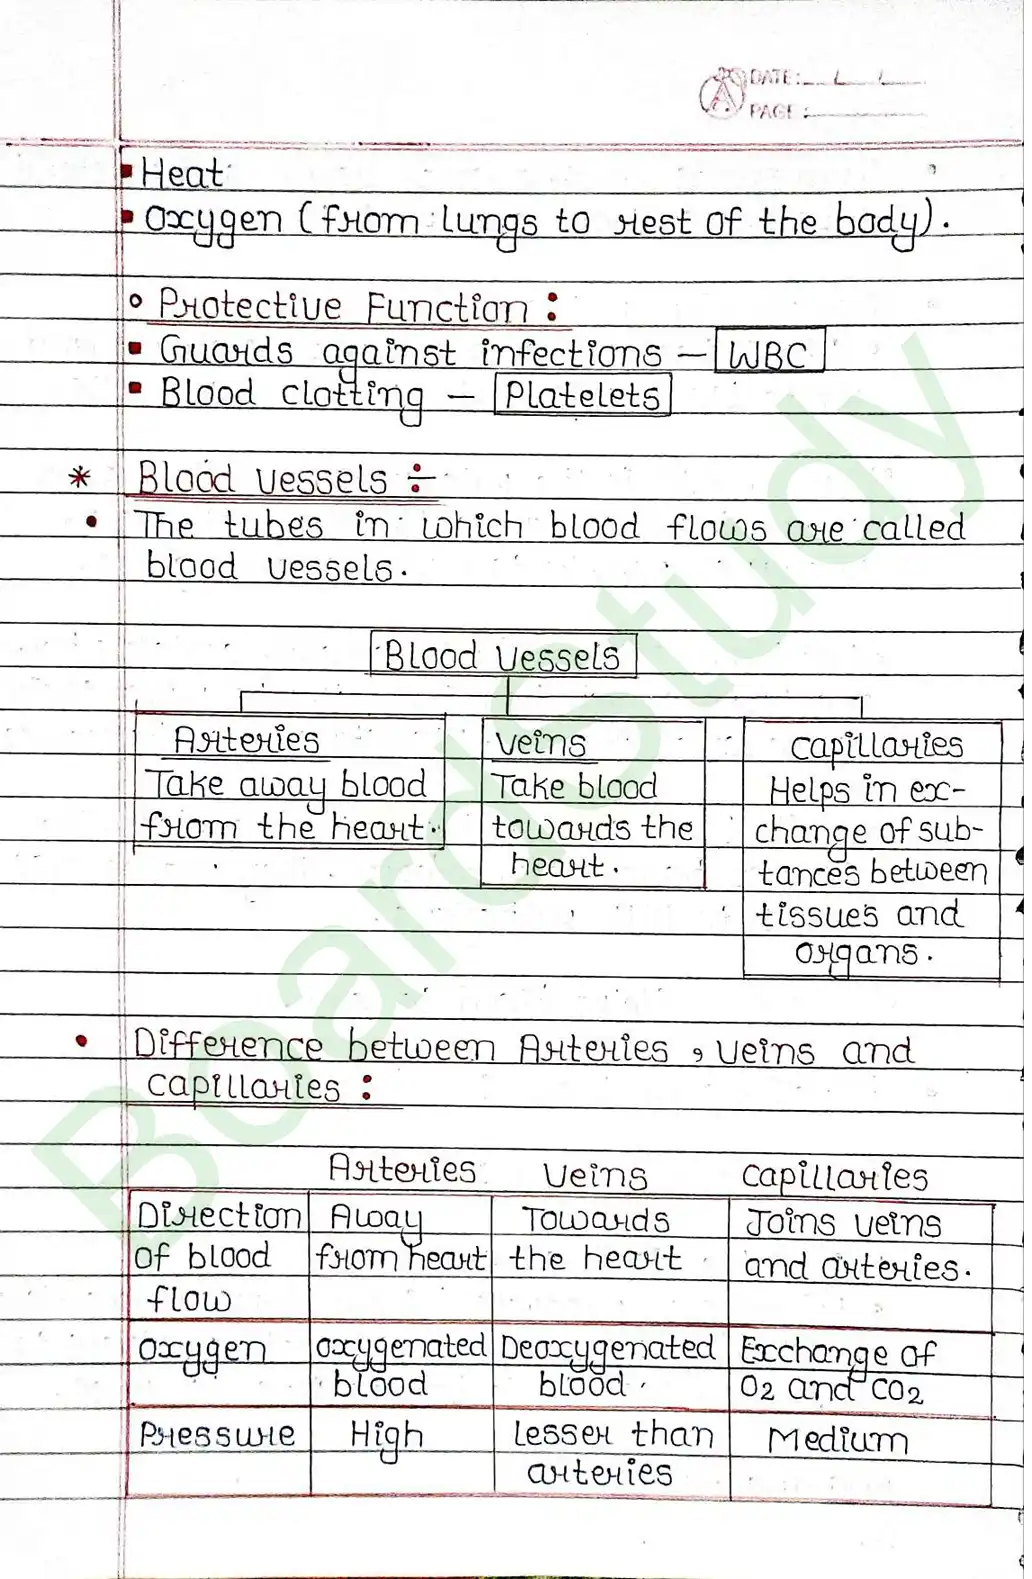 DATE:
PAGE:
Heat
Oxygen (from lungs to rest of the body).
Protective Function:
Guards against infections – WBC
Blood clotting – Platelets
* Blood vessels ÷
• The tubes in which blood flows are called
blood vessels.
Blood vessels
Arteries
Take away blood
from the heart.
Veins
Take blood
towards the
heart.
Capillaries
Helps in ex-
change of sub-
tances between
tissues and
organs.
• Difference between Arteries, veins and
capillaries:
Arteries Veins Capillaries
Direction Away Towards Joins veins
of blood from heart the heart and arteries.
flow
Oxygen oxygenated Deoxygenated Exchange of
blood blood. O2 and CO2
Pressure High lesser than Medium
arteries
BoardStudy